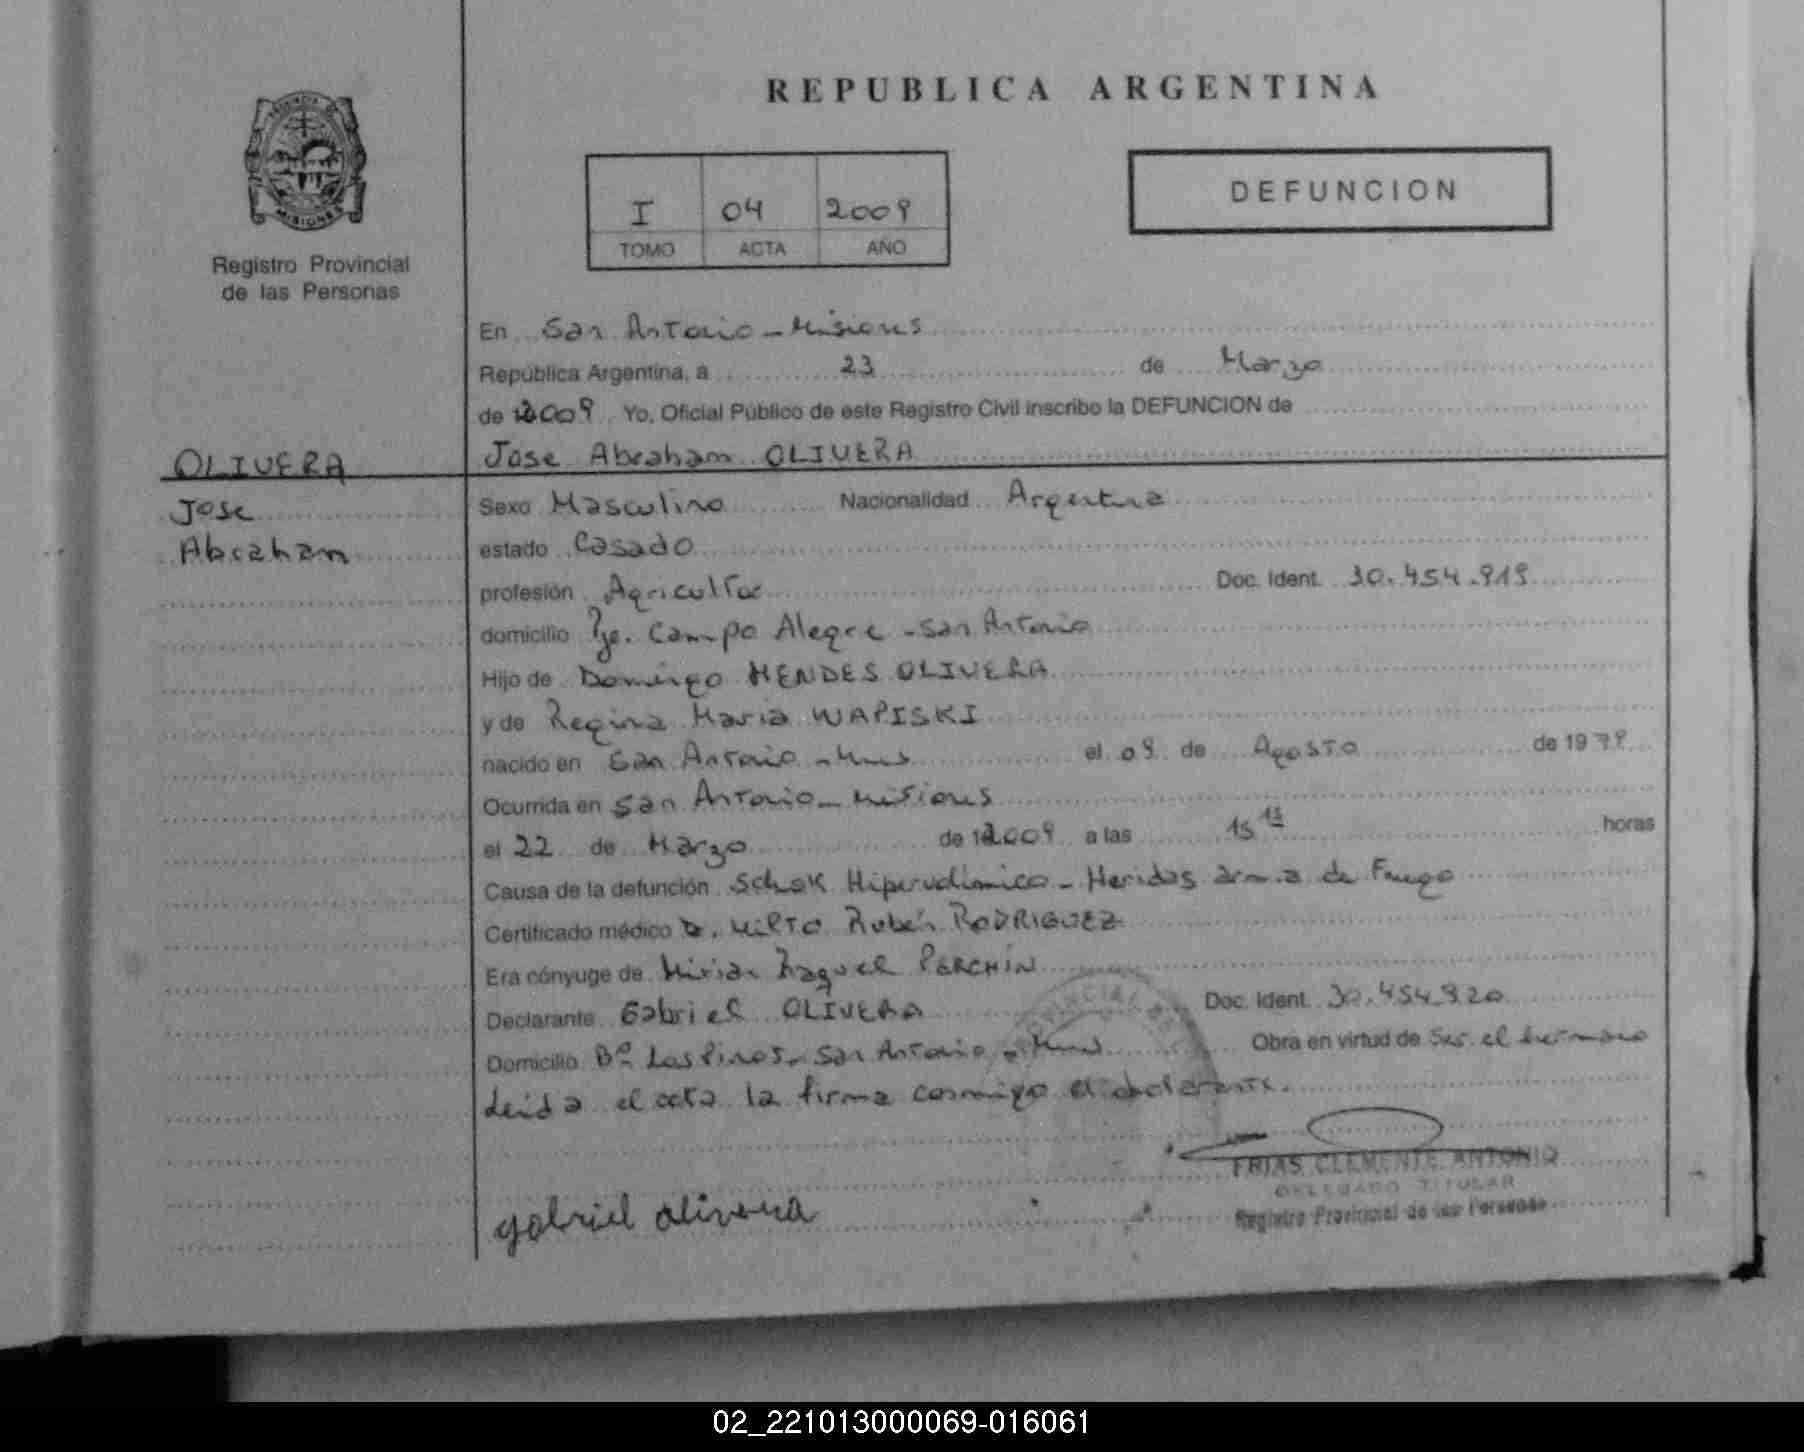 REPUBLICA ARGENTINA
PROVINCIA DE
MISIONES
Registro Provincial
de las Personas
I 04 2009
TOMO ACTA AÑO
DEFUNCION
En San Antonio - Misiones
República Argentina, a 23 de Marzo
de 2009 Yo, Oficial Público de este Registro Civil inscribo la DEFUNCION de
OLIVERA
Jose Abraham OLIVERA
Jose
Abraham
Sexo Masculino Nacionalidad Argentina
estado Casado
profesión Agricultor Doc. Ident. 30.454.919
domicilio Pje. Campo Alegre - San Antonio
Hijo de Domingo MENDES OLIVERA
y de Regina Maria WAPISKI
nacido en San Antonio - Mnes el 09 de Agosto de 1979
Ocurrida en San Antonio - Misiones
el 22 de Marzo de 2009 a las 15 15 horas
Causa de la defunción Schok - Heridas arma de Fuego
Certificado médico Dr. Milto Rubén RODRIGUEZ
Era cónyuge de Mirian Raquel PERCHIN
Declarante Gabriel OLIVERA Doc. Ident. 30.454.920
Domicilio Bº Los Pinos - San Antonio - Mnes Obra en virtud de Ser el hermano
Leida el acta la firma conmigo el declarante.
gabriel olivera
FRIAS CLEMENTE ANTONIO
DELEGADO TITULAR
Registro Provincial de las Personas
02_221013000069-016061